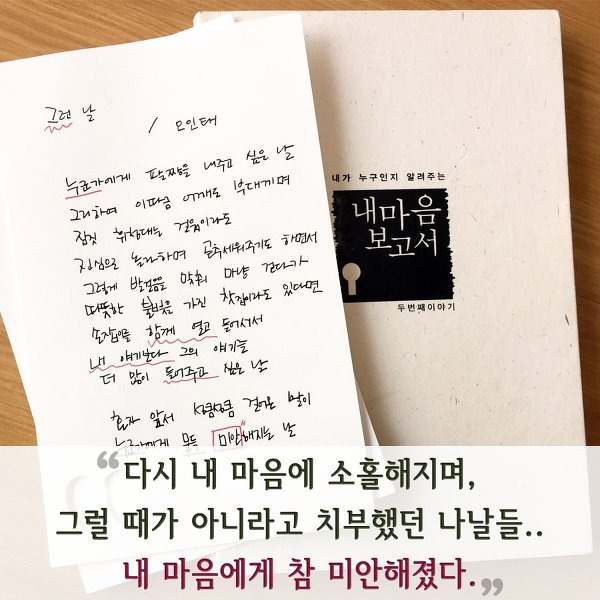 그런 날
/ 오인태
누군가에게 팔짱을 내주고 싶은 날
그리하여 이따금 어깨도 부대끼며
짐짓 휘청대는 걸음이라도
진심으로 놀라하며 곧추세워주기도 하면서
그렇게 발걸음을 맞춰 마냥 걷다가
따뜻한 불빛을 가진 찻집이라도 있다면
손잡이를 함께 열고 들어서서
내 얘기보다 그의 얘기를
더 많이 들어주고 싶은 날
혼자 앞서 성큼성큼 걸어온 날이
누군가에게 문득 미안해지는 날
내가 누구인지 알려주는
내마음
보고서
두번째이야기
“다시 내 마음에 소홀해지며,
그럴 때가 아니라고 치부했던 나날들..
내 마음에게 참 미안해졌다.”